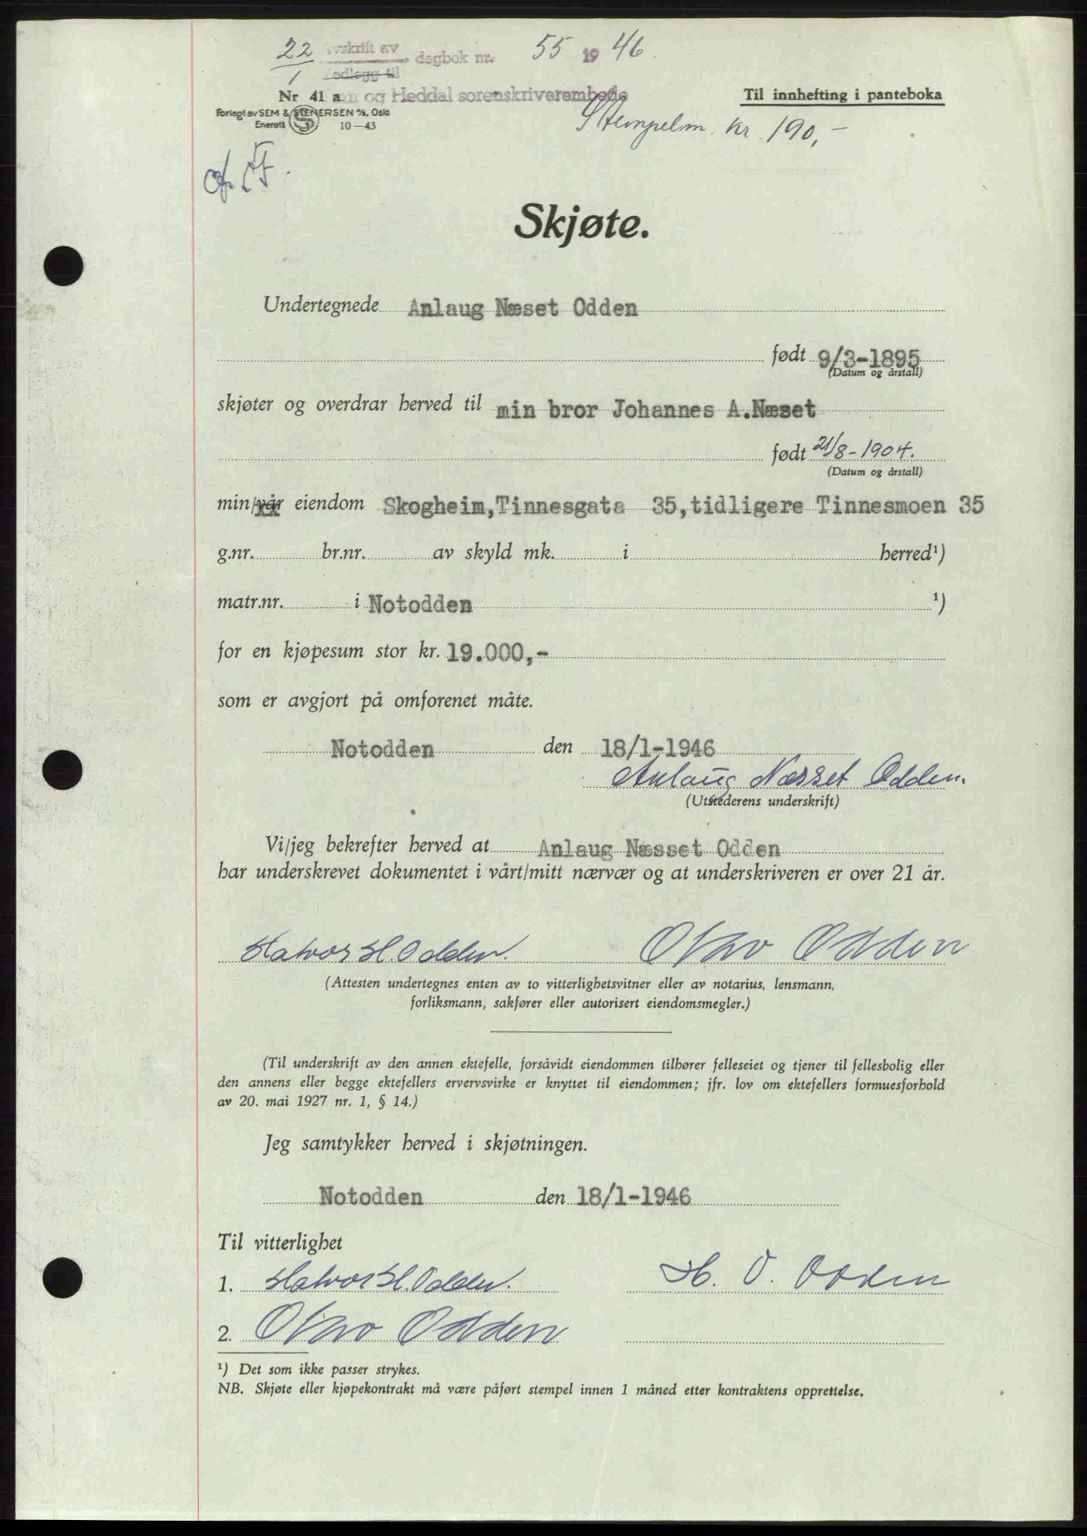 22/1 Avskrift av dagbok nr. 55 1946
Vedlegg til
Nr 41 a og Heddal sorenskriverembede
Til innhefting i panteboka
Forlagt av SEM & STENERSEN A/S, Oslo
Enerett S 10-43
Stempelm. kr 190,-
Skjøte.
Undertegnede Anlaug Næset Odden
født 9/3-1895
(Datum og årstall)
skjøter og overdrar herved til min bror Johannes A.Næset
født 21/8-1904.
(Datum og årstall)
min/vår eiendom Skogheim,Tinnesgata 35,tidligere Tinnesmoen 35
g.nr. br.nr. av skyld mk. i herred¹)
matr.nr. i Notodden ¹)
for en kjøpesum stor kr. 19.000,-
som er avgjort på omforenet måte.
Notodden den 18/1-1946
Anlaug Næsset Odden.
(Utstederens underskrift)
Vi/jeg bekrefter herved at Anlaug Næsset Odden
har underskrevet dokumentet i vårt/mitt nærvær og at underskriveren er over 21 år.
Halvor H. Odden. Olav Odden
(Attesten undertegnes enten av to vitterlighetsvitner eller av notarius, lensmann,
forliksmann, sakfører eller autorisert eiendomsmegler.)
(Til underskrift av den annen ektefelle, forsåvidt eiendommen tilhører felleseiet og tjener til fellesbolig eller
den annens eller begge ektefellers ervervsvirke er knyttet til eiendommen; jfr. lov om ektefellers formuesforhold
av 20. mai 1927 nr. 1, § 14.)
Jeg samtykker herved i skjøtningen.
Notodden den 18/1-1946
Til vitterlighet
1. Halvor H. Odden. H. O. Odden
2. Olav Odden
¹) Det som ikke passer strykes.
NB. Skjøte eller kjøpekontrakt må være påført stempel innen 1 måned etter kontraktens opprettelse.